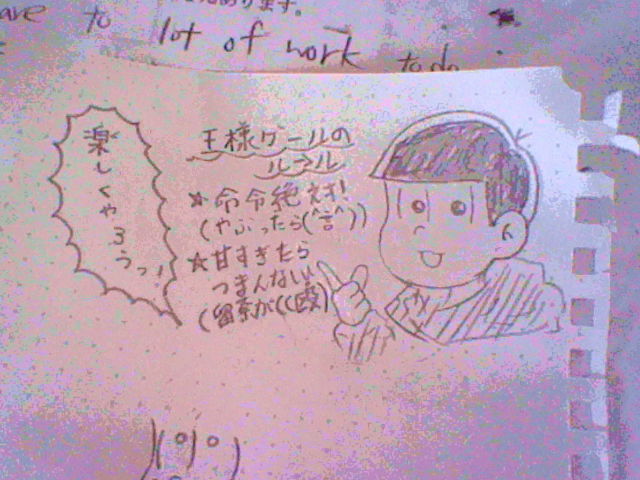 ave to
あります。
lot of work to do
王様ゲームの
ルール
★命令絶対!
(やぶったら(^言^))
★甘すぎたら
つまんない
楽しくやろうっ!